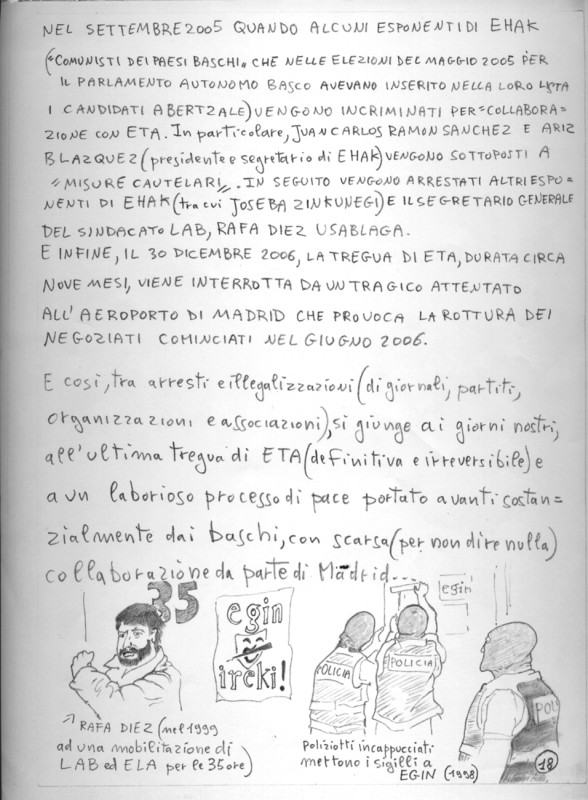 NEL SETTEMBRE 2005 QUANDO ALCUNI ESPONENTI DI EHAK
("COMUNISTI DEI PAESI BASCHI„ CHE NELLE ELEZIONI DEL MAGGIO 2005 PER
IL PARLAMENTO AUTONOMO BASCO AVEVANO INSERITO NELLA LORO LISTA
I CANDIDATI ABERTZALE) VENGONO INCRIMINATI PER "COLLABORA=
ZIONE CON ETA. In particolare, JUAN CARLOS RAMON SANCHEZ E ARIZ
BLAZQUEZ (presidente e segretario di EHAK) VENGONO SOTTOPOSTI A
"MISURE CAUTELARI„. IN SEGUITO VENGONO ARRESTATI ALTRI ESPO=
NENTI DI EHAK (tra cui JOSEBA ZINKUNEGI) E IL SEGRETARIO GENERALE
DEL SINDACATO LAB, RAFA DIEZ USABLAGA.
E INFINE, IL 30 DICEMBRE 2006, LA TREGUA DI ETA, DURATA CIRCA
NOVE MESI, VIENE INTERROTTA DA UN TRAGICO ATTENTATO
ALL'AEROPORTO DI MADRID CHE PROVOCA LA ROTTURA DEI
NEGOZIATI COMINCIATI NEL GIUGNO 2006.
E così, tra arresti e illegalizzazioni (di giornali, partiti,
organizzazioni e associazioni), si giunge ai giorni nostri,
all'ultima tregua di ETA (definitiva e irreversibile) e
a un laborioso processo di pace portato avanti sostan=
zialmente dai baschi, con scarsa (per non dire nulla)
collaborazione da parte di Madrid...
35
egin
ireki!
egin
POLICIA
POLICIA
POLI
RAFA DIEZ (nel 1999
ad una mobilitazione di
LAB ed ELA per le 35 ore)
Poliziotti incappucciati
mettono i sigilli a
EGIN (1998)
18